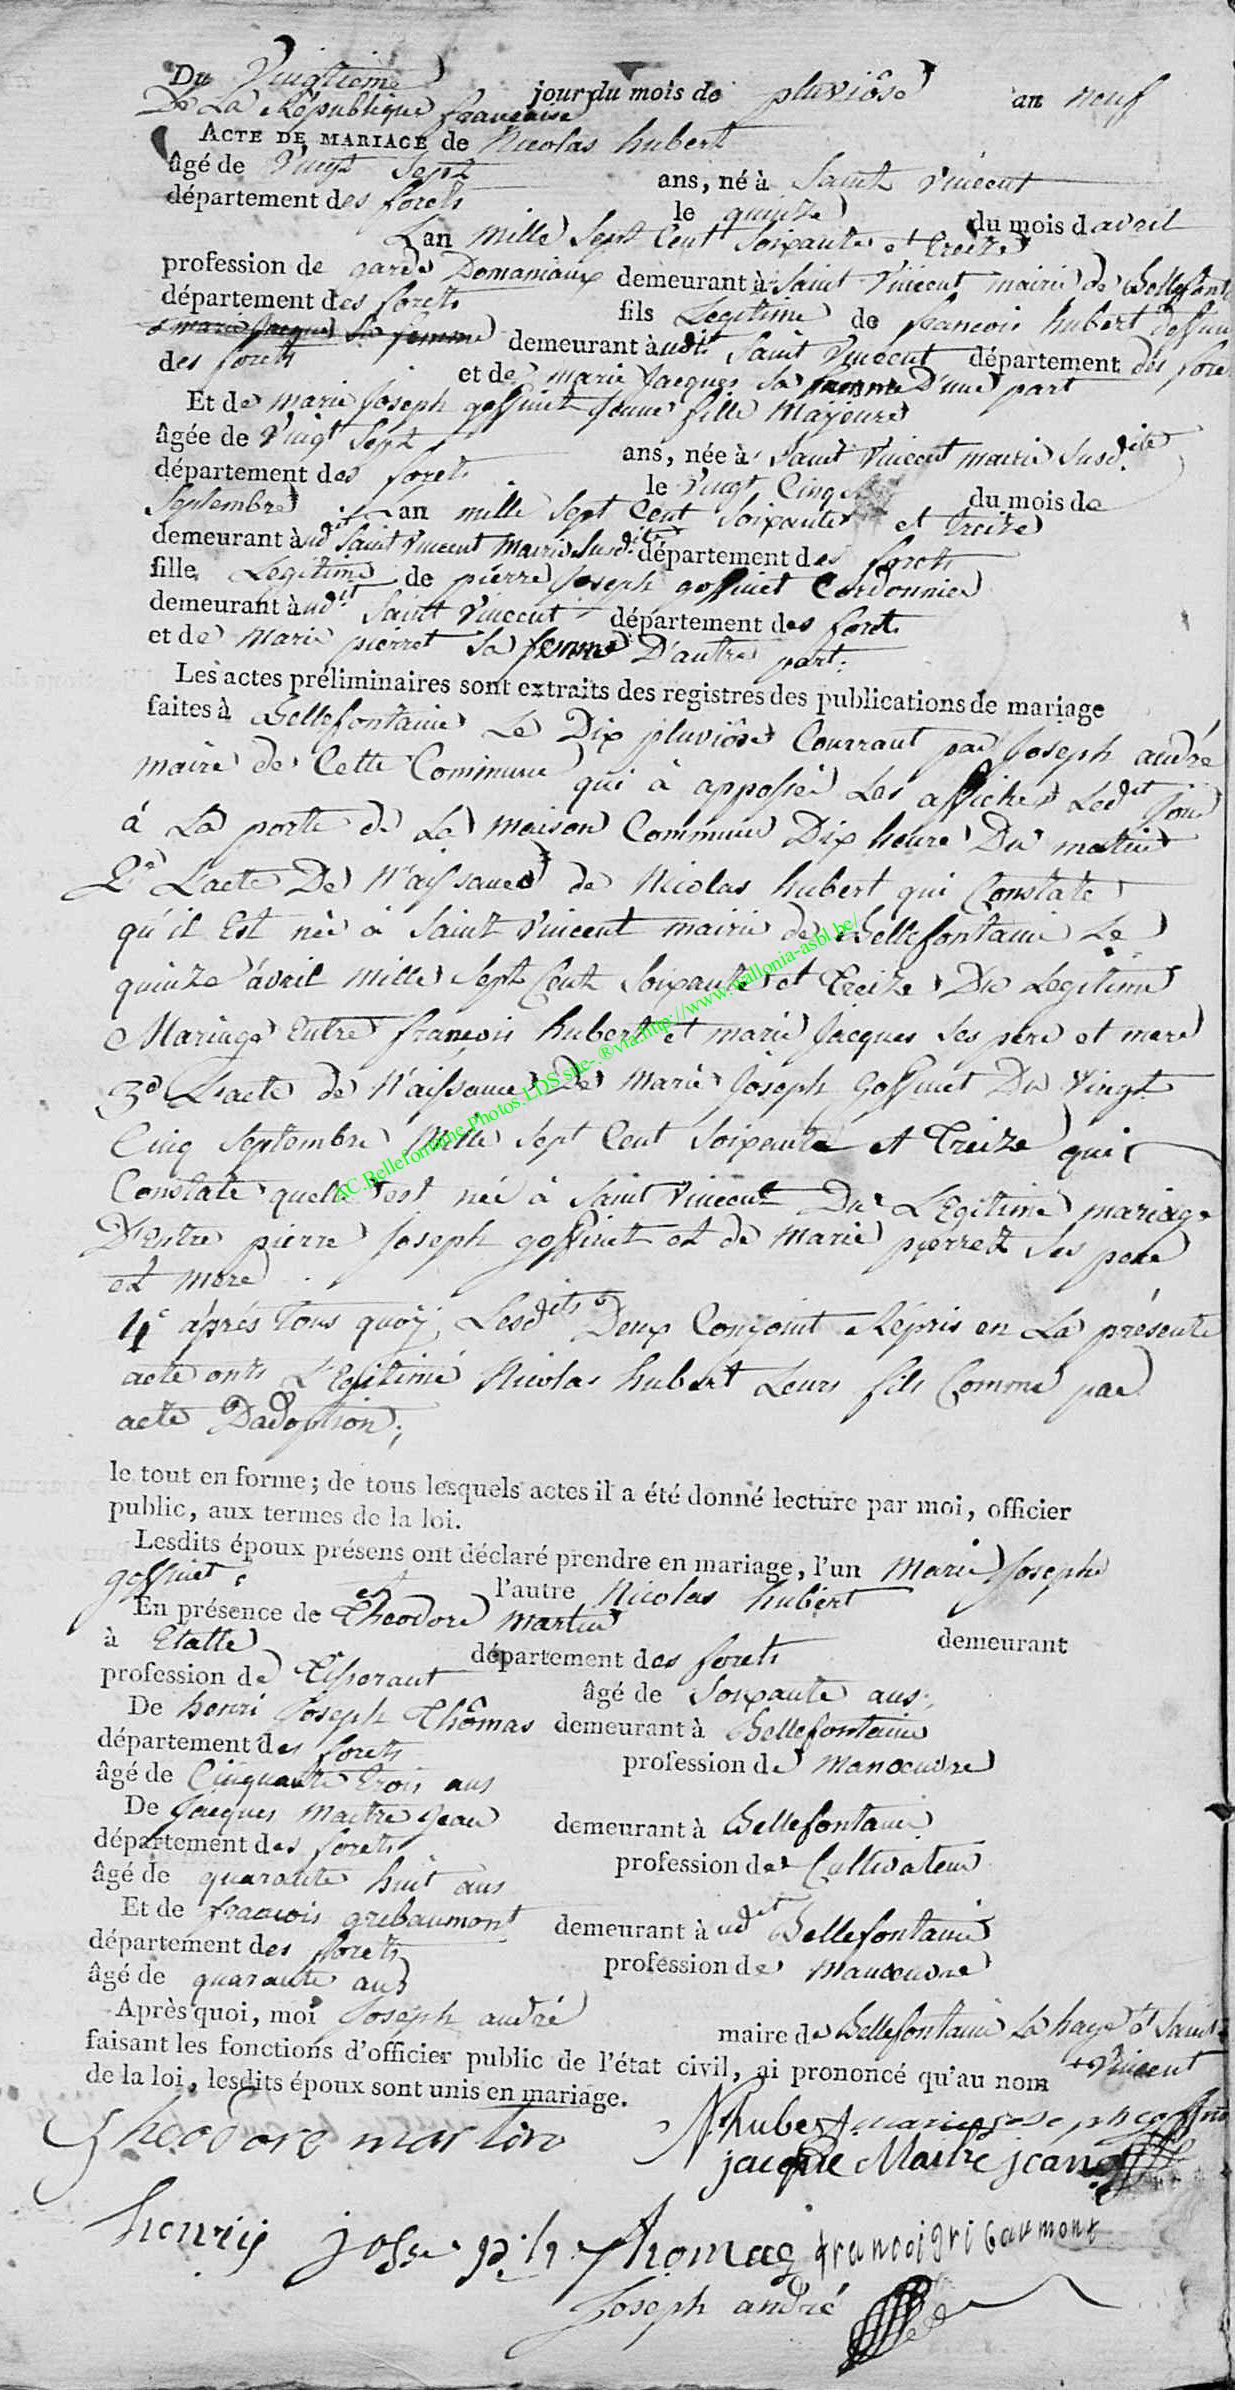 Du Vingtieme jour du mois de pluviôse an neuf
De La République française
ACTE DE MARIAGE de Nicolas hubert
âgé de Vingt Sept ans, né à Saint Vincent
département des forets le quinze du mois d'avril
L'an mille Sept Cent Soixante et treize
profession de garde Domaniaux demeurant à Saint Vincent mairie de Bellefont
département des forets fils Legitime de francois hubert
marie Jacques Sa femme demeurant àudit Saint Vincent département des fore
des forets et de marie Jacques Sa femme D'une part
Et de marie joseph goffinet jeune fille Majeure
âgée de Vingt Sept ans, née à Saint Vincent mairie Susdite
département des forets le Vingt Cinq du mois de
Septembre L'an mille Sept Cent Soixante et treize
demeurant àudit Saint Vincent Mairie Susdite département des forets
fille Legitime de pierre joseph goffinet Cordonnier
demeurant àudit Saint Vincent département des forets
et de Marie pierret Sa femme D'autre part.
Les actes préliminaires sont extraits des registres des publications de mariage
faites à Bellefontaine Le Dix pluviôse Courrant par Joseph andré
maire de Cette Commune qui à apposséé Les affiches Ledit jour
à La porte de La maison Commune Dix heure Du matin
2° L'acte De N'aissance de Nicolas hubert qui Constate
qu'il Est née à Saint Vincent mairie de Bellefontaine Le
quinze avril mille Sept Cent Soixante et Treize Du Legitime
Mariage Entre francois hubert et marie Jacques Ses père et mere
3° L'acte de N'aissance De Marie Joseph Goffinet Du Vingt
Cinq Septembre Mille Sept Cent Soixante et Treize qui
Constate quelle est née à Saint Vincent Du L'Egitime mariage
D'Entre pierre Joseph goffinet et de Marie pierret Ses pere
et mere
4° aprés Tous quoÿ, Lesdits Deux Conjoint Répris en La présente
acte onts L'Egitimé Nicolas hubert Leurs fils Comme par
acte Dadoption;
le tout en forme; de tous lesquels actes il a été donné lecture par moi, officier
public, aux termes de la loi.
Lesdits époux présens ont déclaré prendre en mariage, l'un Marie Josephe
goffinet et l'autre Nicolas hubert
En présence de Theodore Martin demeurant
à Etalle département des forets
profession de Tisserant âgé de Soixante ans;
De henri Joseph Thomas demeurant à Bellefontaine
département des forets profession de Manoeuvre
âgé de Cinquante trois ans
De Jacques Maitre Jean demeurant à Bellefontaine
département des forets profession de Cultivateur
âgé de quarante huit ans
Et de francois gribaumont demeurant àudit Bellefontaine
département des forets profession de Manoeuvre
âgé de quarante ans
Après quoi, moi Joseph andré maire de Bellefontaine La haye et Saint
faisant les fonctions d'officier public de l'état civil, ai prononcé qu'au nom + Vincent
de la loi, lesdits époux sont unis en mariage.
Theodore martin N hubert marie joseph goffinet
jacque Maitre jean
henrij josseph thomas francoi gribaumont
Joseph andré
AC.Bellefontaine.Photos.LDS site-.®via.http://www.wallonia-asbl.be/